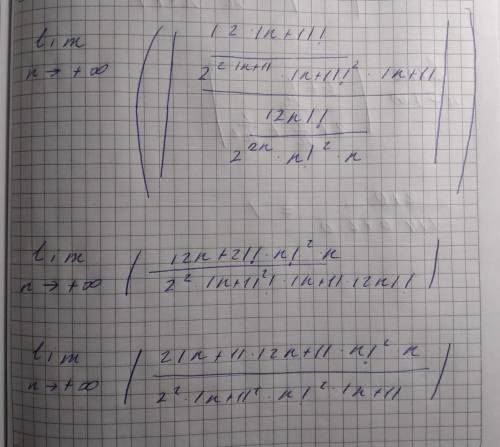 lim n→+∞ ( | (2·(n+1))! / 2^(2(n+1)) · (n+1)!^2 · (n+1)
(2n)! / 2^(2n) · n!^2 · n | )
lim n→+∞ ( (2n+2)! · n!^2 · n / 2^2 · (n+1)!^2 · (n+1) · (2n)! )
lim n→+∞ ( 2(n+1) · (2n+1) · n!^2 · n / 2^2 · (n+1)^2 · n!^2 · (n+1) )